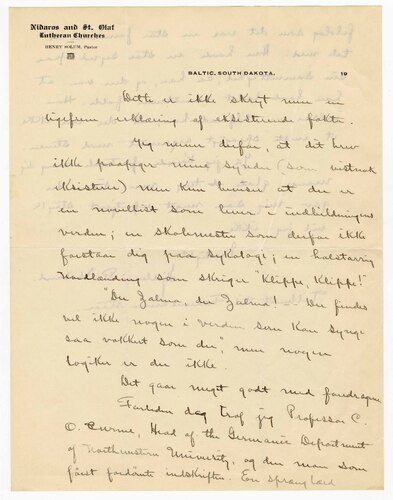 Nidaros and St. Olaf
Lutheran Churches
HENRY SOLUM, Pastor
BALTIC, SOUTH DAKOTA, 19
Dette er ikke skryt men en
ligefrem erklæring af eksisterende fakta.
Jeg mener derfor, at dit brev
ikke paapeger mine synder (som vistnok
eksisterer) men kun beviser at du er
en novellist som lever i indbildningens
verden; en skolemester som derfor ikke
forstaar dig paa sykologi; en halstarrig
Nordlænding som skriger "Klippe, Klippe!"
"Du Zalma, du Zalma! Du findes
vel ikke nogen i verden som kan synge
saa vakkert som du", men nogen
logiker er du ikke.
Det gaar meget godt med foredragene.
Forleden dag traf jeg Professor C.
O. Curme, Head of the Germanic Department
of Northwestern University, og den man som
først fordømte indskriften. En sprænglærd